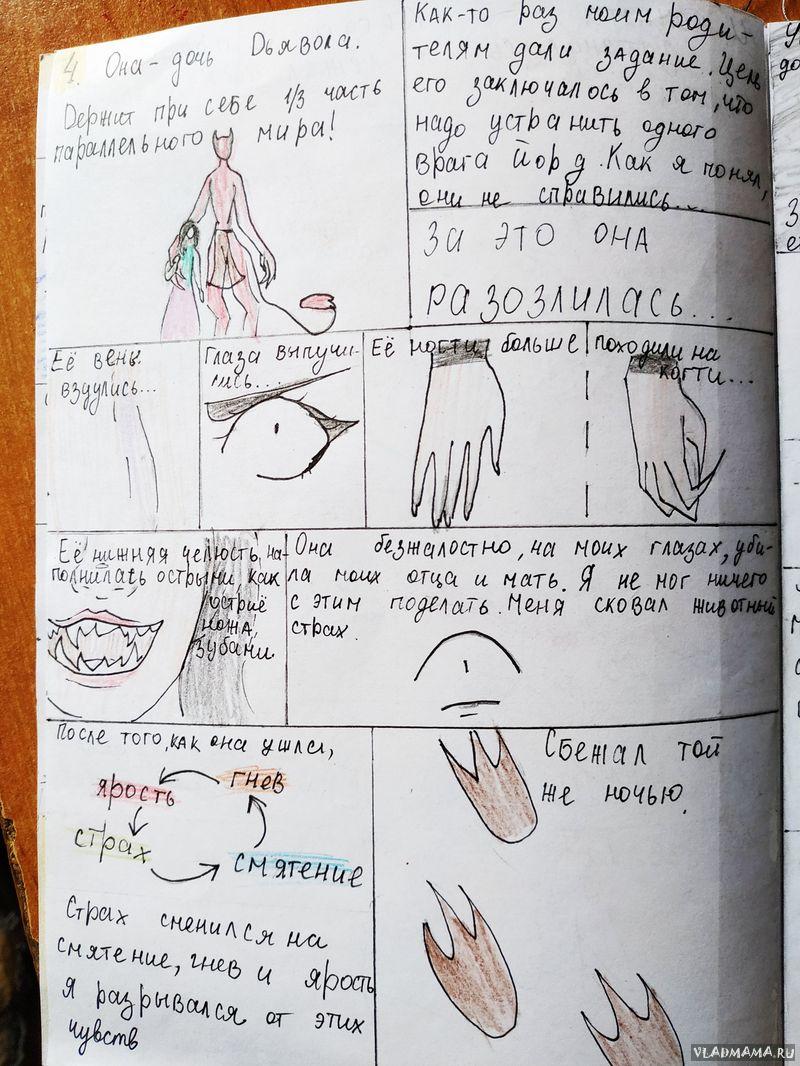 4. Она - дочь Дьявола.
Держит при себе 1/3 часть
параллельного мира!
Как-то раз моим роди-
телям дали задание. Цель
его заключалось в том, что
надо устранить одного
врага Йорд. Как я понял,
они не справились...
За это она
разозлилась...
Её вены
вздулись...
Глаза выпучи-
лись....
Её ногти больше
походили на
когти...
Её нижняя челюсть на-
полнилась острыми, как
остриё
ножа,
зубами.
Она безжалостно, на моих глазах, уби-
ла моих отца и мать. Я не мог ничего
с этим поделать. Меня сковал животный
страх.
После того, как она ушла,
гнев
ярость
страх
смятение
Страх сменился на
смятение, гнев и ярость
я разрывался от этих
чувств
Сбежал той
же ночью.
VLADMAMA.RU